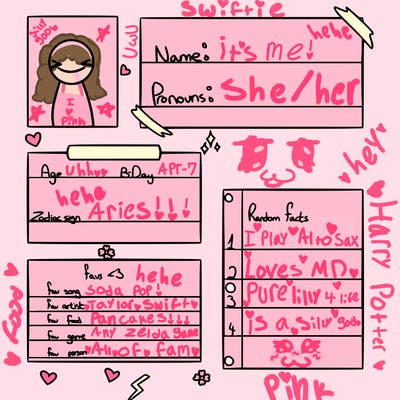 Swiftie
Silly goob
UwU
I
Pink
hehe
Name: it's me!
Pronouns: she/her
Age Uhh B-Day Apr-7
hehe
Zodiac sign Aries!!!
hey
Harry Potter
Random Facts
1 I Play Alto Sax
2 Loves MD
3 Pure lilly 4 life
4 is a silly goob
favs <3 hehe
fav song soda pop!
fav artist Taylor Swift
fav food Pancakes!!!
fav game Any zelda game
fav person All of fam
Pink